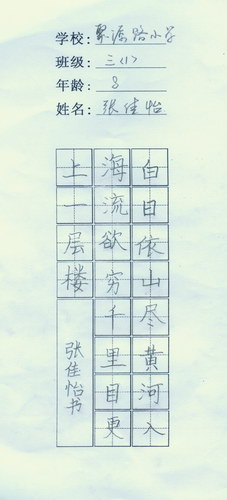 学校:聚源路小学
班级:三(1)
年龄:8
姓名:张佳怡
白日依山尽黄河入
海流欲穷千里目更
上一层楼
张佳怡书